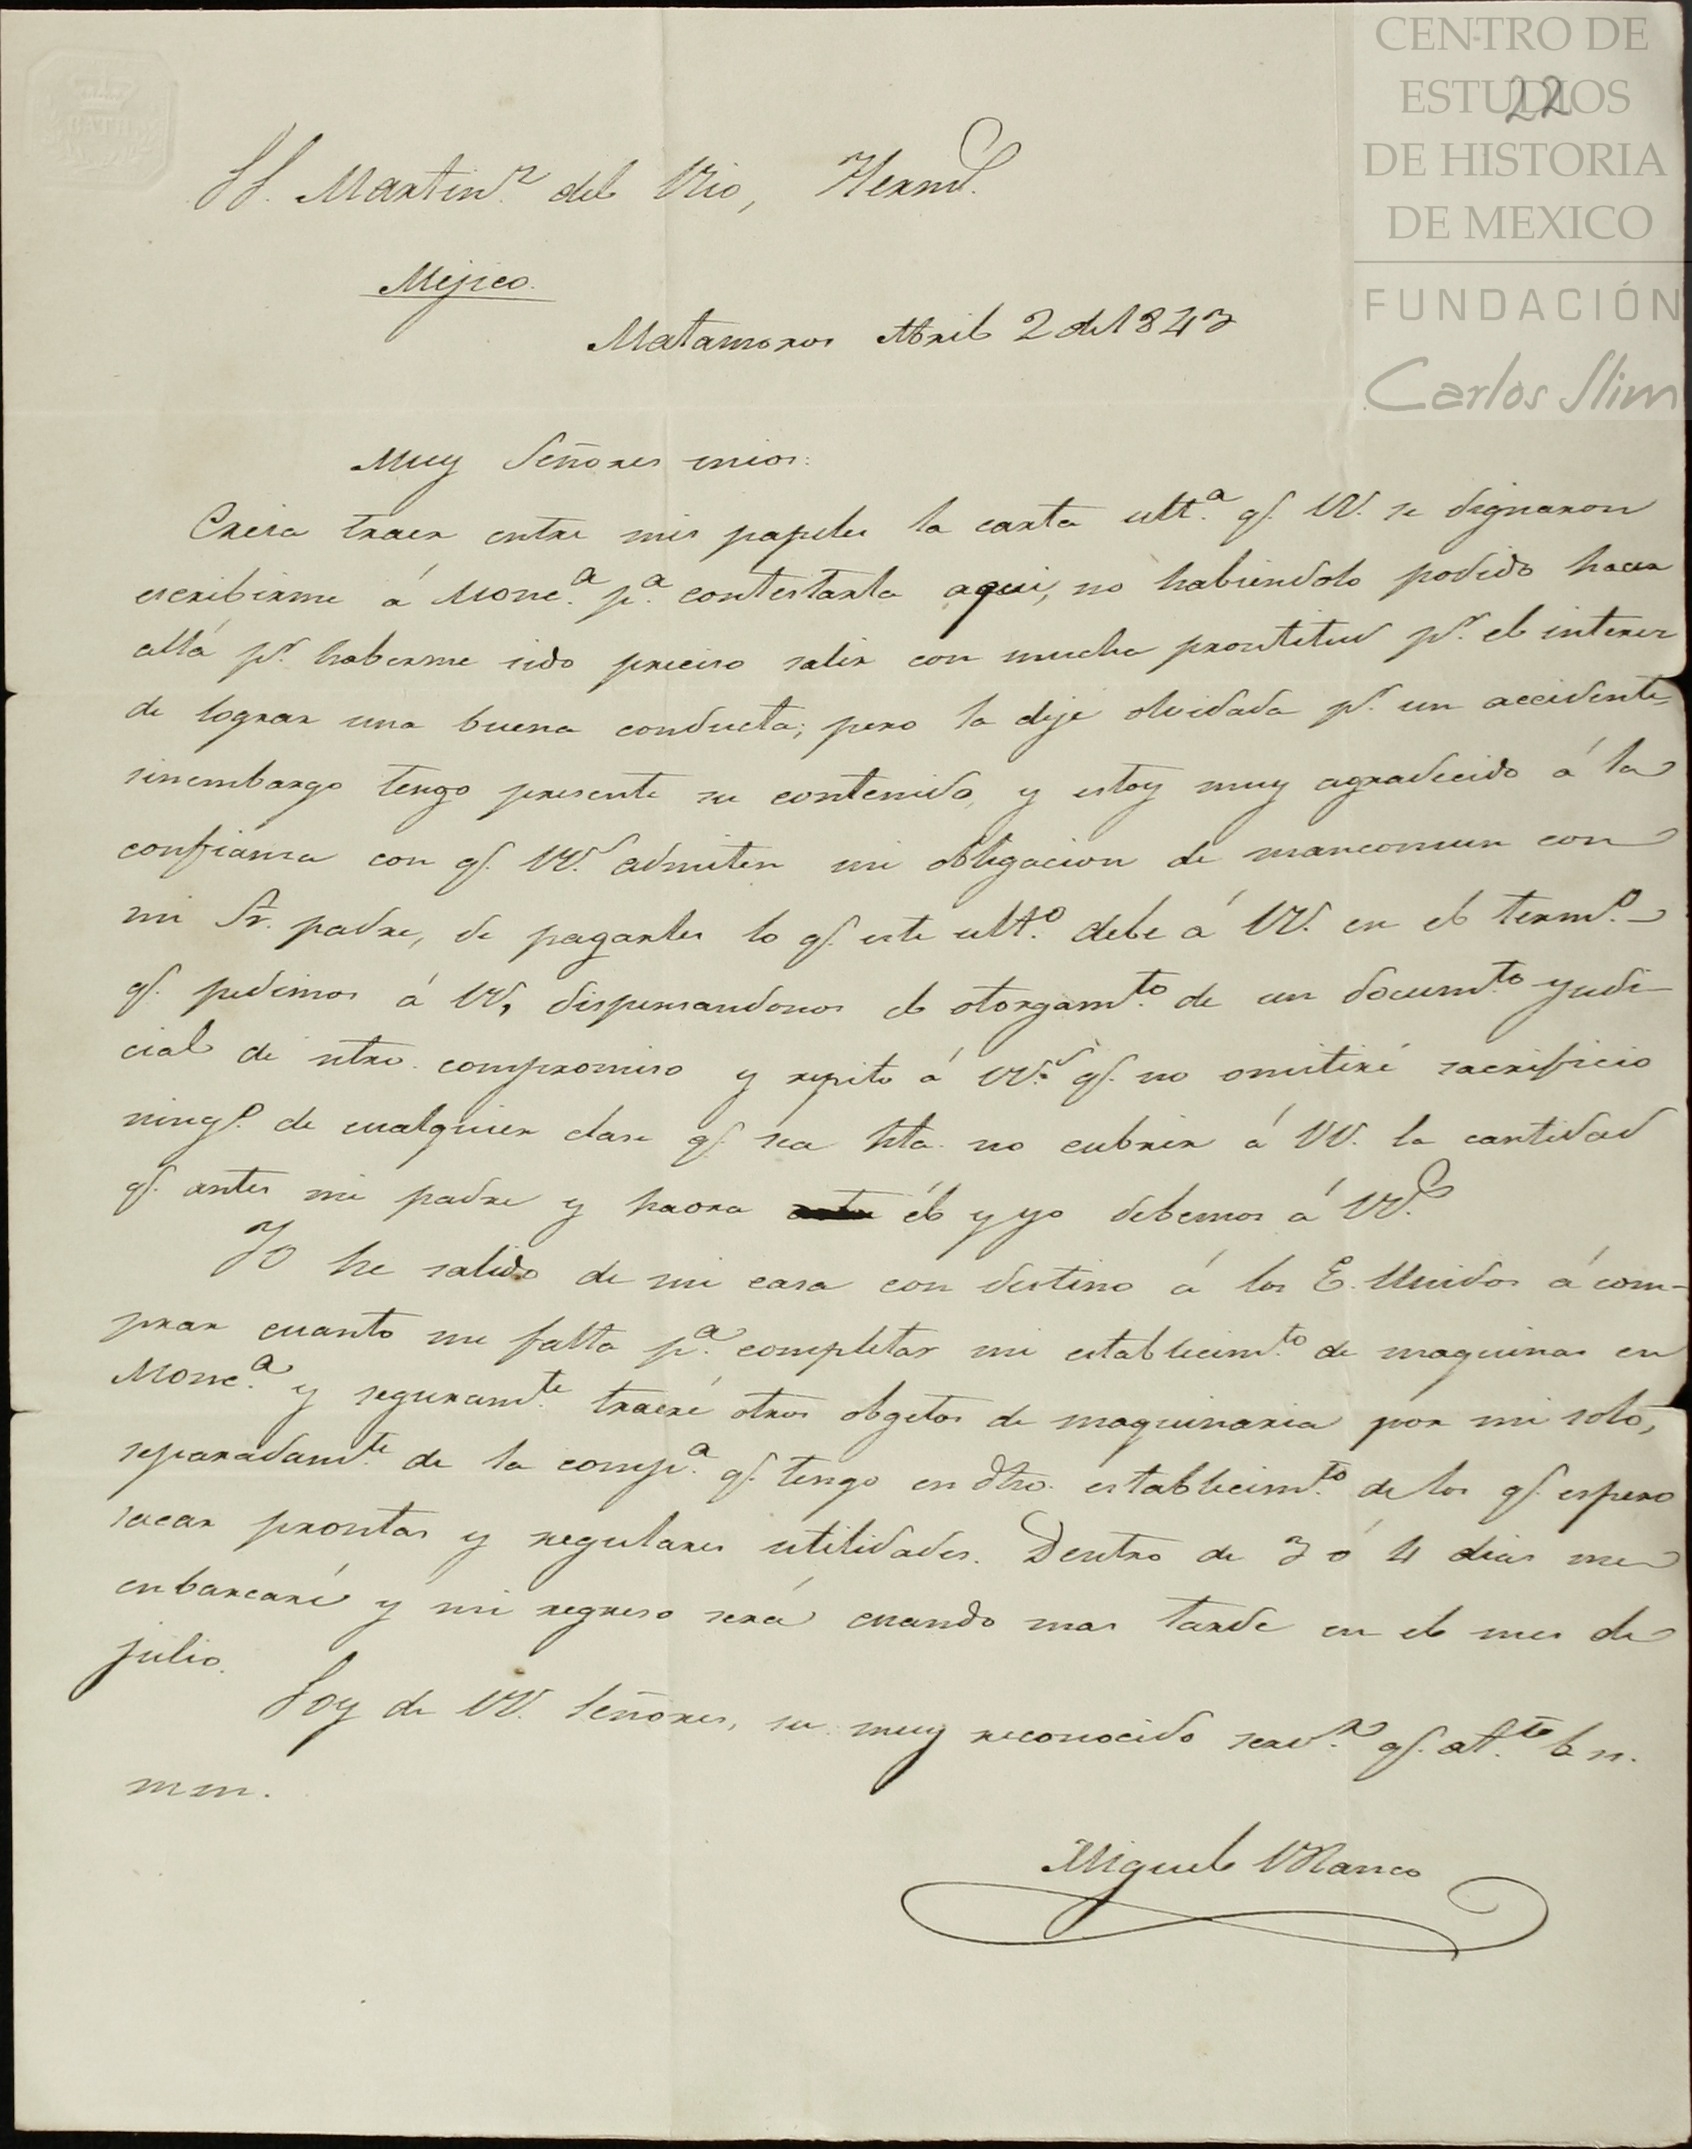 CENTRO DE
ESTUDIOS
DE HISTORIA
DE MEXICO
FUNDACIÓN
Carlos Slim
22
SS. Martin.z del Rio, Herms.
Mejico.
Matamoros Abril 2 de 1843
Muy Señores mios:
Creia traer entre mis papeles la carta ult.a q. VV. se dignaron
escribirme á Monc.a p.a contestarla aqui, no habiendolo podido hacer
allá p.r haberme sido preciso salir con mucha prontitud p.r el interes
de lograr una buena conducta; pero la dejé olvidada p.r un accidente,
sinembargo tengo presente su contenido, y estoy muy agradecido á la
confianza con q. VV.s admiten mi obligacion de mancomun con
mi Sr. padre, de pagarles lo q. este ult.o debe á VV. en el term.o
q. pedimos á VV, dispensandonos el otorgam.to de un docum.to judi-
cial de ntro. compromiso y repito á VV.s q. no omitiré sacrificio
ning.o de cualquier clase q. sea hta. no cubrir á VV. la cantidad
q. antes mi padre y haora él y yo debemos á VV.s
Yo he salido de mi casa con destino á los E. Unidos á com-
prar cuanto me falta p.a completar mi establecim.to de maquinas en
Monc.a y seguram.te traeré otros obgetos de maquinaria por mi solo,
separadam.te de la comp.a q. tengo en dho. establecim.to de los q. espero
sacar prontas y regulares utilidades. Dentro de 3 ó 4 dias me
enbarcaré y mi regreso será cuando mas tarde en el mes de
julio.
Soy de VV. Señores, su muy reconocido serv.r q. at.te b. s.
mm.
Miguel Blanco